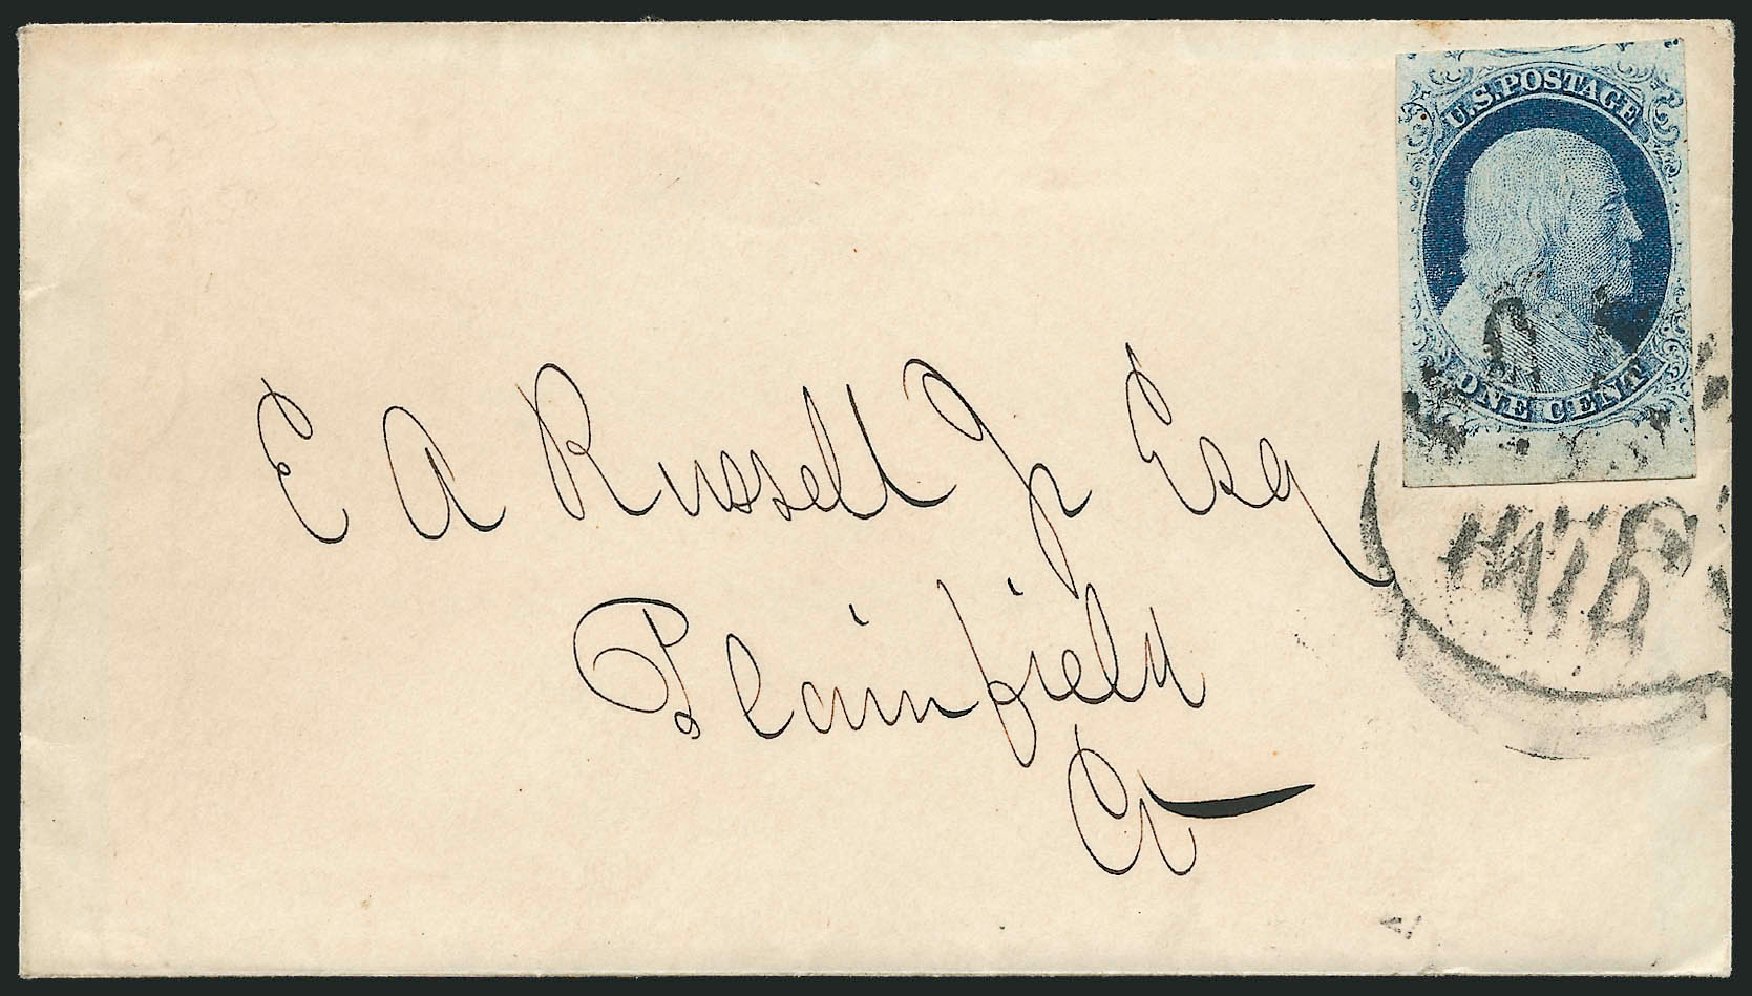 U.S. POSTAGE
ONE CENT
PAID
E A Russell Jr Esq
Plainfield
Ct